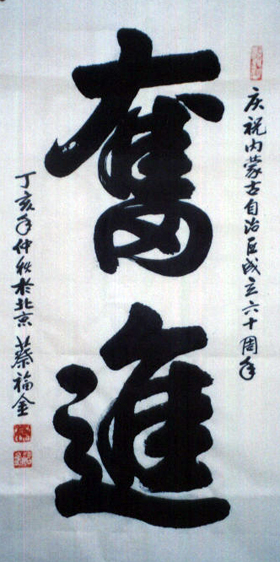 庆祝内蒙古自治区成立六十周年
奮進
丁亥年仲秋於北京 蔡福金